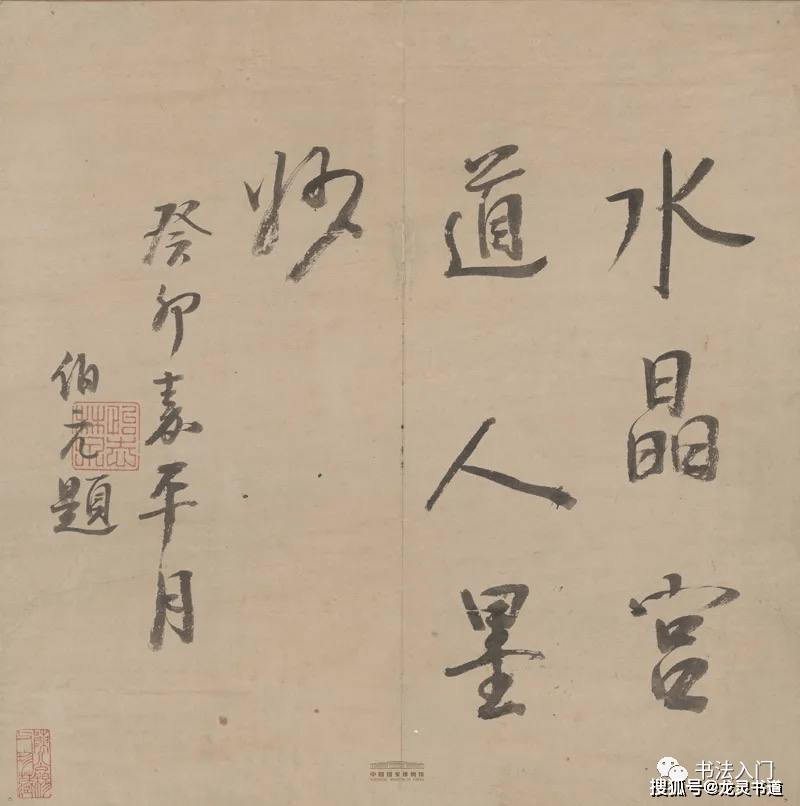 水晶宫
道人墨
妙
癸卯嘉平月
伯元題
中國国家博物馆
书法入门
搜狐号@龙灵书道